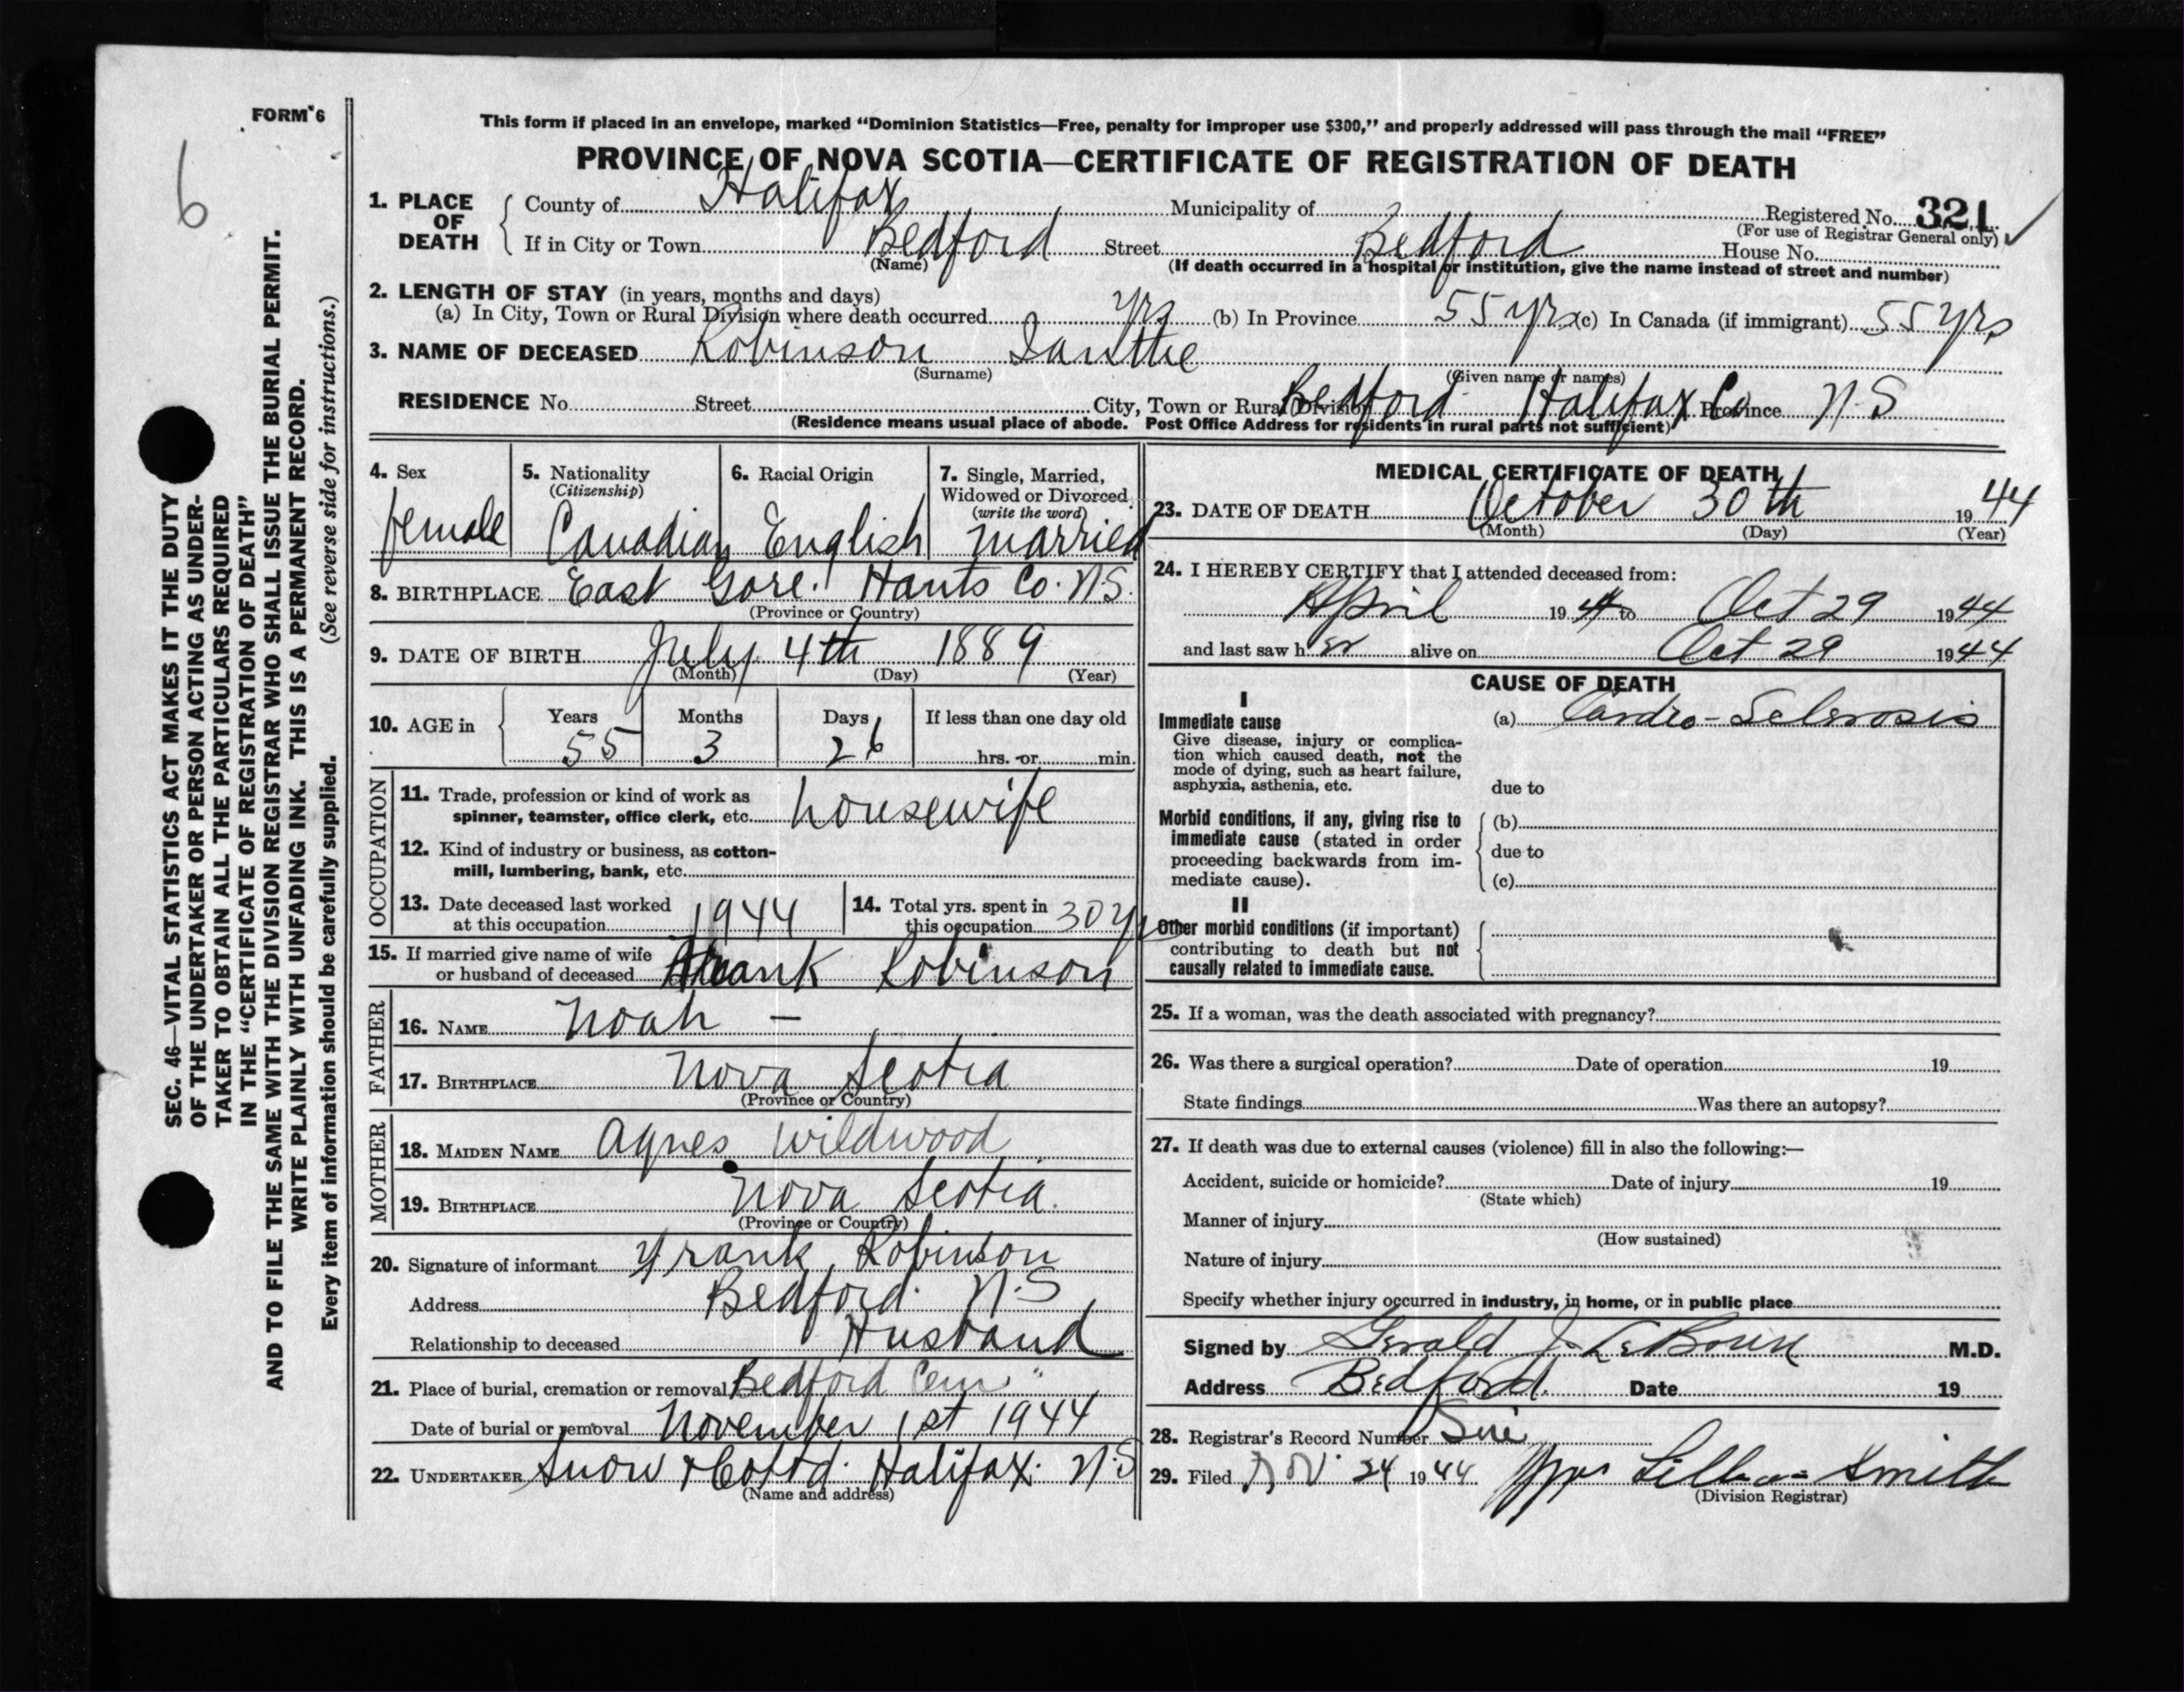 FORM 6
6
This form if placed in an envelope, marked “Dominion Statistics—Free, penalty for improper use $300,” and properly addressed will pass through the mail “FREE”
PROVINCE OF NOVA SCOTIA—CERTIFICATE OF REGISTRATION OF DEATH
1. PLACE OF DEATH County of Halifax Municipality of Registered No. 321
(For use of Registrar General only)
If in City or Town Bedford Street Bedford House No.
(Name) (If death occurred in a hospital or institution, give the name instead of street and number)
2. LENGTH OF STAY (in years, months and days)
(a) In City, Town or Rural Division where death occurred yrs (b) In Province 55 yrs (c) In Canada (if immigrant) 55 yrs
3. NAME OF DECEASED Robinson Ianthe
(Surname) (Given name or names)
RESIDENCE No. Street City, Town or Rural Division Bedford Halifax Co Province N.S
(Residence means usual place of abode. Post Office Address for residents in rural parts not sufficient)
4. Sex female
5. Nationality (Citizenship) Canadian
6. Racial Origin English
7. Single, Married, Widowed or Divorced (write the word) married
8. BIRTHPLACE East Gore. Hants Co. N.S.
(Province or Country)
9. DATE OF BIRTH July 4th 1889
(Month) (Day) (Year)
10. AGE in Years 55 Months 3 Days 26 If less than one day old
hrs. or min.
OCCUPATION
11. Trade, profession or kind of work as spinner, teamster, office clerk, etc. housewife
12. Kind of industry or business, as cotton-mill, lumbering, bank, etc.
13. Date deceased last worked at this occupation 1944
14. Total yrs. spent in this occupation 30 yr
15. If married give name of wife or husband of deceased Frank Robinson
FATHER
16. NAME Noah —
17. BIRTHPLACE Nova Scotia
(Province or Country)
MOTHER
18. MAIDEN NAME Agnes Wildwood
19. BIRTHPLACE Nova Scotia.
(Province or Country)
20. Signature of informant Frank Robinson
Address Bedford. N.S
Relationship to deceased Husband
21. Place of burial, cremation or removal Bedford Cem "
Date of burial or removal November 1st 1944
22. UNDERTAKER Snow & Co Ltd. Halifax. N.S
(Name and address)
MEDICAL CERTIFICATE OF DEATH
23. DATE OF DEATH October 30th 1944
(Month) (Day) (Year)
24. I HEREBY CERTIFY that I attended deceased from:
April 1944 to Oct 29 1944
and last saw her alive on Oct 29 1944
CAUSE OF DEATH
I
Immediate cause (a) Cardio-Sclerosis
Give disease, injury or complica-
tion which caused death, not the
mode of dying, such as heart failure,
asphyxia, asthenia, etc.
due to
Morbid conditions, if any, giving rise to (b)
immediate cause (stated in order
proceeding backwards from im- due to
mediate cause). (c)
II
Other morbid conditions (if important)
contributing to death but not
causally related to immediate cause.
25. If a woman, was the death associated with pregnancy?
26. Was there a surgical operation? Date of operation 19
State findings Was there an autopsy?
27. If death was due to external causes (violence) fill in also the following:—
Accident, suicide or homicide? Date of injury 19
(State which)
Manner of injury
(How sustained)
Nature of injury
Specify whether injury occurred in industry, in home, or in public place
Signed by Gerald J. M.D.
Address Bedford. Date 19
28. Registrar's Record Number
29. Filed Nov 24 1944 Mrs Lillian Smith
(Division Registrar)
SEC. 46—VITAL STATISTICS ACT MAKES IT THE DUTY
OF THE UNDERTAKER OR PERSON ACTING AS UNDER-
TAKER TO OBTAIN ALL THE PARTICULARS REQUIRED
IN THE “CERTIFICATE OF REGISTRATION OF DEATH”
AND TO FILE THE SAME WITH THE DIVISION REGISTRAR WHO SHALL ISSUE THE BURIAL PERMIT.
WRITE PLAINLY WITH UNFADING INK. THIS IS A PERMANENT RECORD.
Every item of information should be carefully supplied. (See reverse side for instructions.)